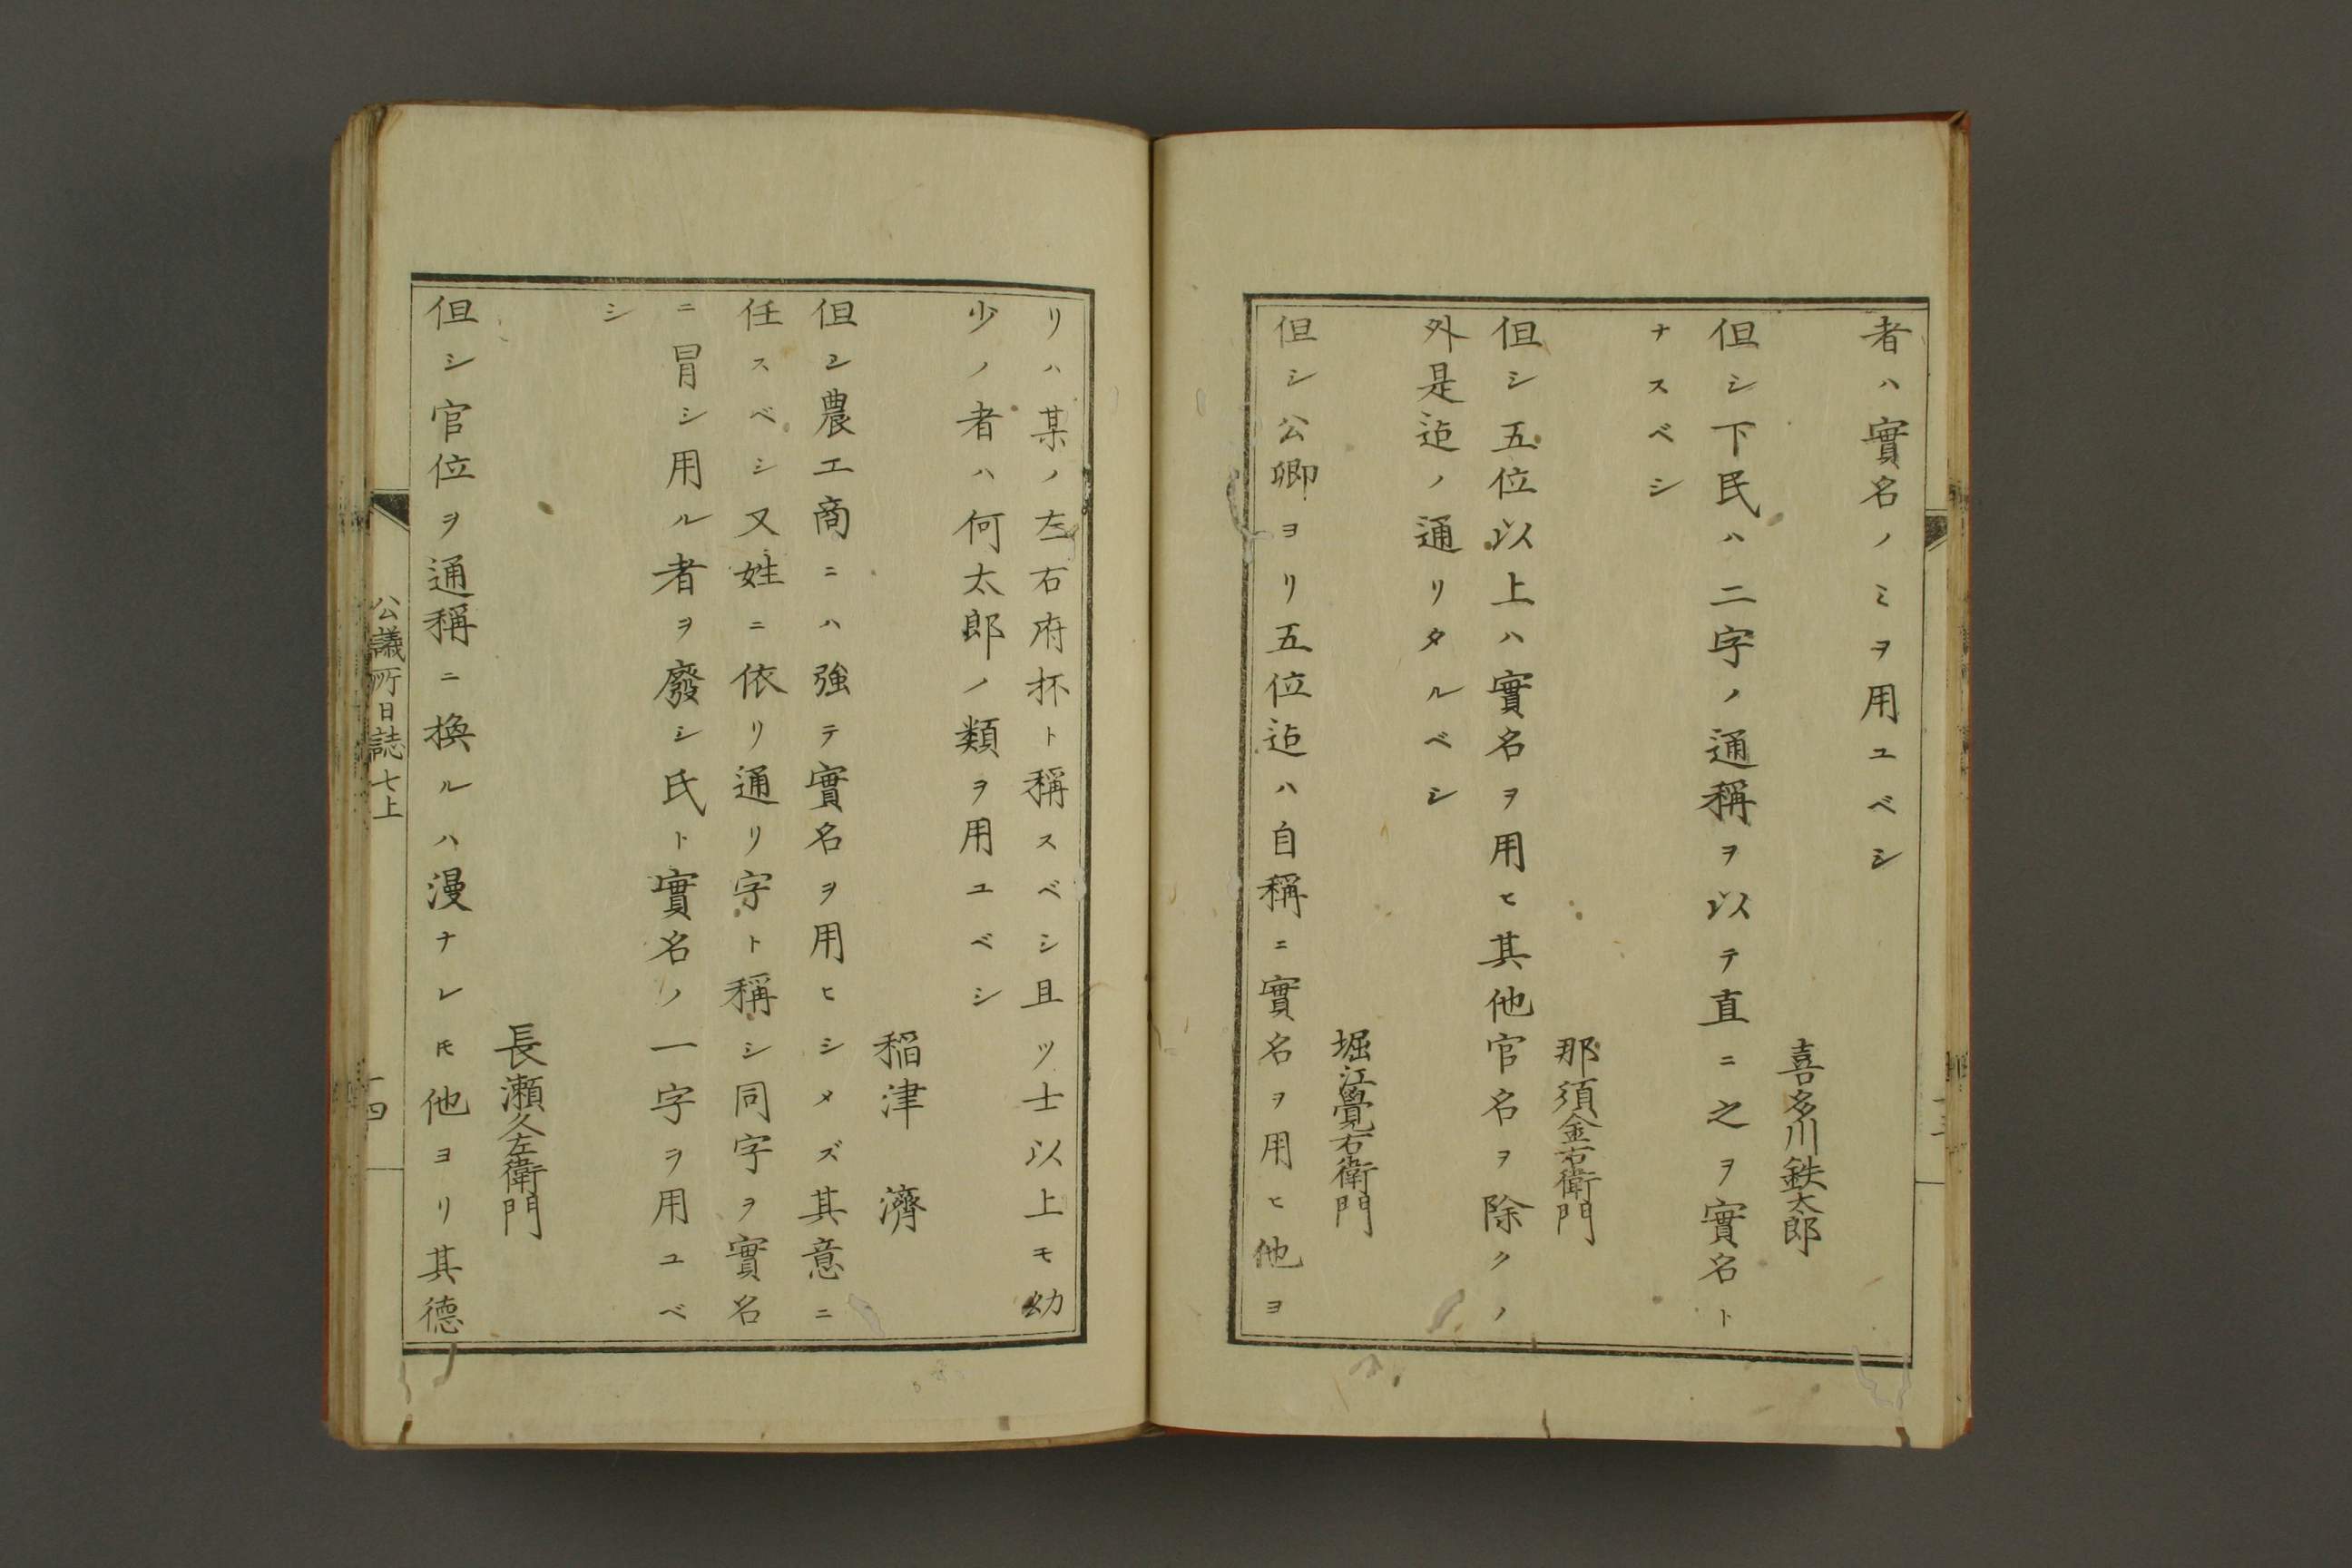 者ハ實名ノミヲ用ユベシ
喜多川鉄太郎
但シ下民ハ二字ノ通稱ヲ以テ直ニ之ヲ實名ト
ナスベシ
那須金右衛門
但シ五位以上ハ實名ヲ用ヒ其他官名ヲ除クノ
外是迠ノ通リタルベシ
堀江覺右衛門
但シ公卿ヨリ五位迠ハ自稱ニ實名ヲ用ヒ他ヨ
リハ某ノ左右府抔ト稱スベシ且ツ士以上モ幼
少ノ者ハ何太郎ノ類ヲ用ユベシ
稲津濟
但シ農工商ニハ強テ實名ヲ用ヒシメズ其意ニ
任スベシ又姓ニ依リ通リ字ト稱シ同字ヲ實名
ニ冐シ用ル者ヲ廢シ氏ト實名ノ一字ヲ用ユベ
シ
長瀬久左衛門
但シ官位ヲ通稱ニ換ルハ漫ナレ𪜈他ヨリ其德
公議所日誌七上
十四